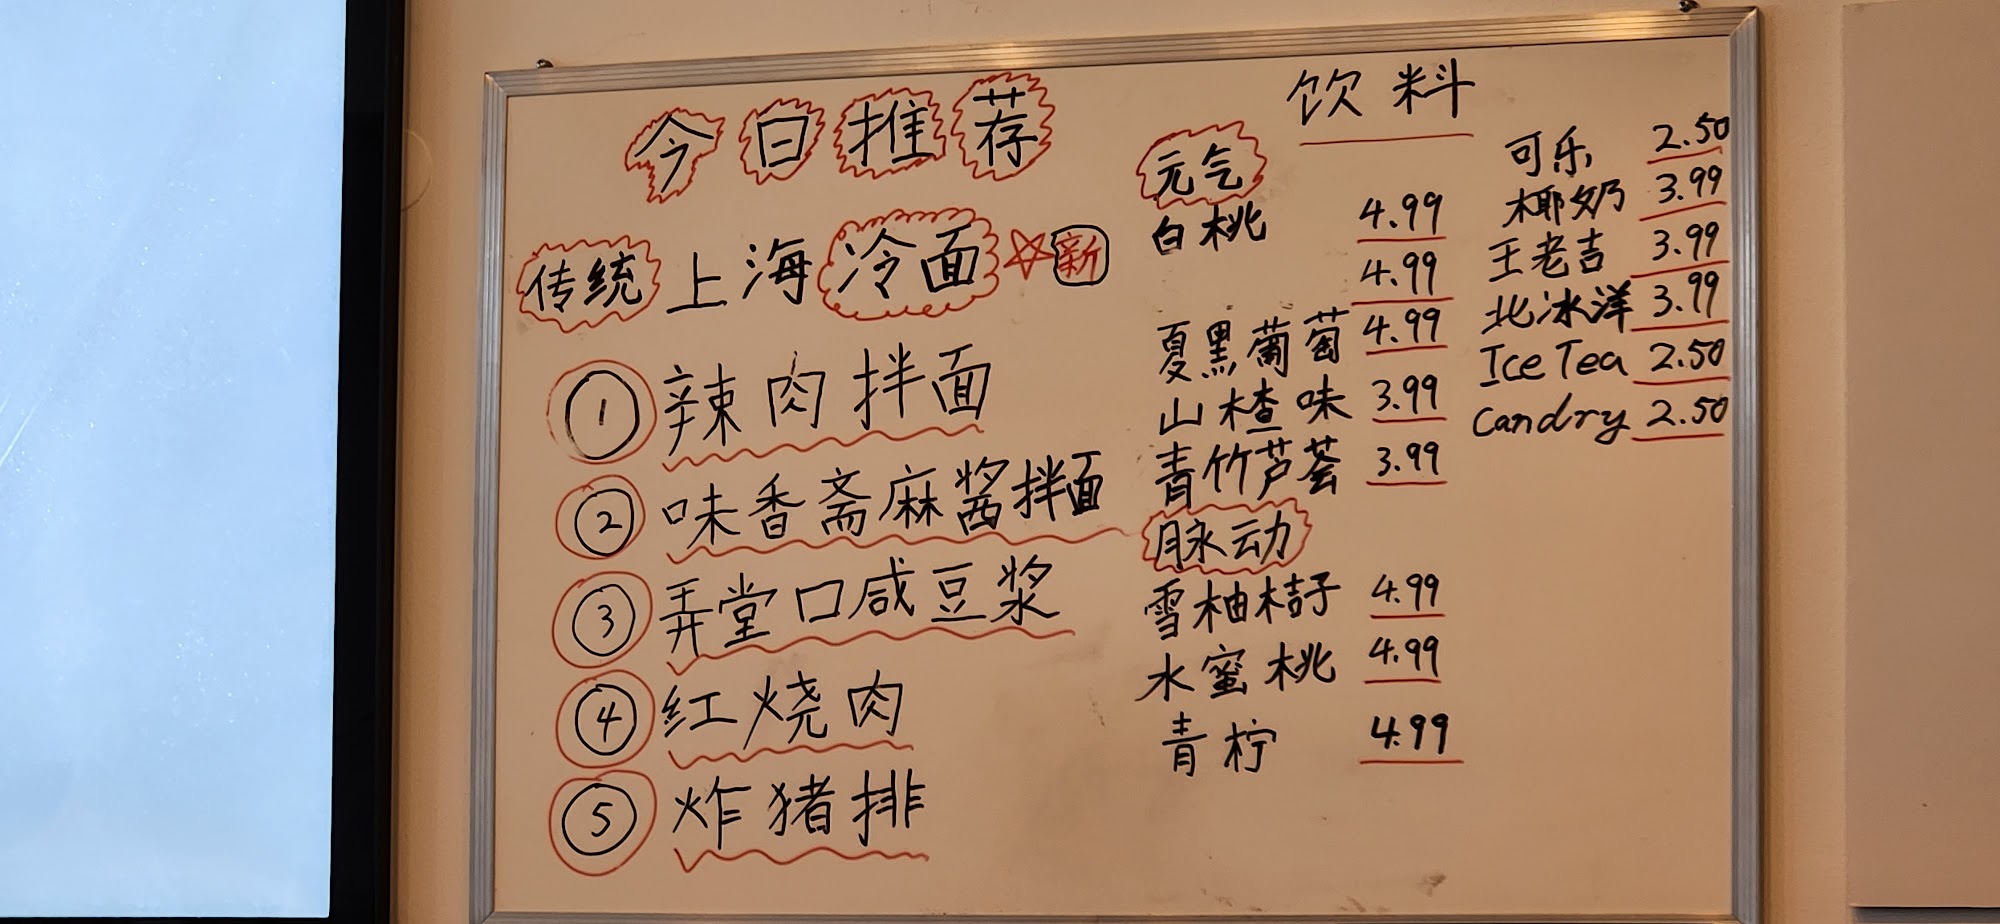 今日推荐
传统 上海冷面 新
① 辣肉拌面
② 味香斋麻酱拌面
③ 弄堂口咸豆浆
④ 红烧肉
⑤ 炸猪排
饮料
元气
白桃 4.99
4.99
夏黑葡萄 4.99
山楂味 3.99
青竹芦荟 3.99
脉动
雪柚桔子 4.99
水蜜桃 4.99
青柠 4.99
可乐 2.50
椰奶 3.99
王老吉 3.99
北冰洋 3.99
Ice Tea 2.50
Candry 2.50